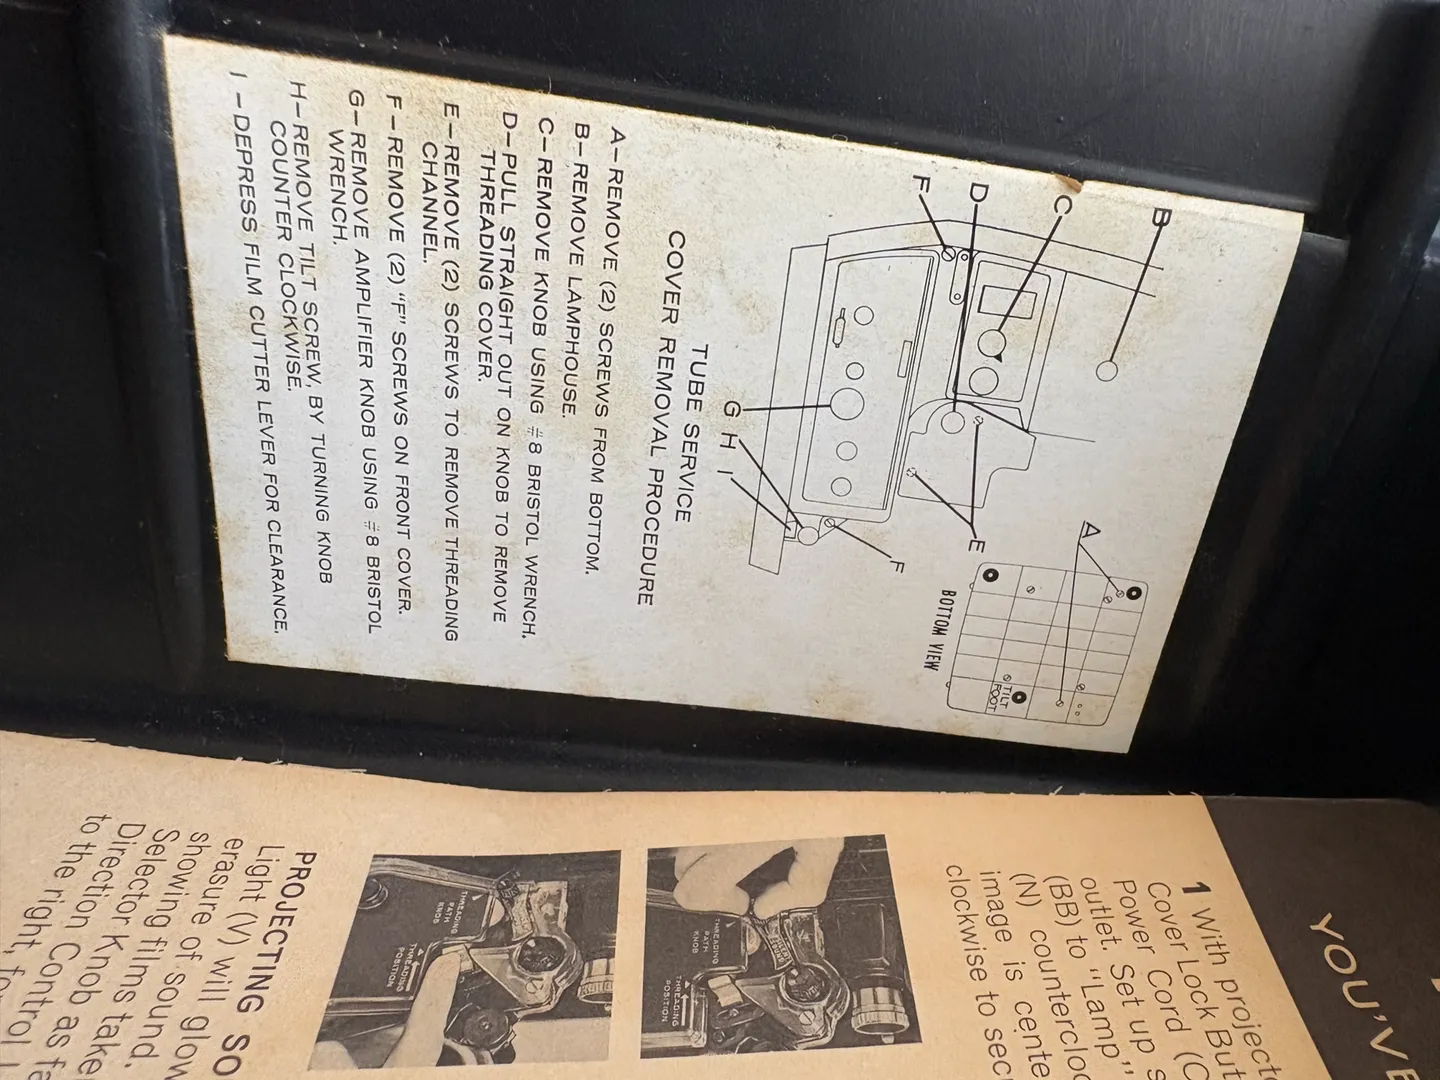 B
C
D
F
A
E
F
G
H
I
TILT
FOOT
BOTTOM VIEW
TUBE SERVICE
COVER REMOVAL PROCEDURE
A-REMOVE (2) SCREWS FROM BOTTOM.
B-REMOVE LAMPHOUSE.
C-REMOVE KNOB USING #8 BRISTOL WRENCH.
D-PULL STRAIGHT OUT ON KNOB TO REMOVE
THREADING COVER.
E-REMOVE (2) SCREWS TO REMOVE THREADING
CHANNEL.
F-REMOVE (2) "F" SCREWS ON FRONT COVER.
G-REMOVE AMPLIFIER KNOB USING #8 BRISTOL
WRENCH.
H-REMOVE TILT SCREW, BY TURNING KNOB
COUNTER CLOCKWISE.
I-DEPRESS FILM CUTTER LEVER FOR CLEARANCE.
YOU'VE
1 With project
Cover Lock But
Power Cord (C
outlet. Set up s
(BB) to "Lamp"
(N) counterclo
image is cente
clockwise to sec
THREADING
PATH
KNOB
THREADING
POSITION
THREADING
PATH
KNOB
THREADING
POSITION
PROJECTING SO
Light (V) will glow
erasure of sound.
showing films take
Selecting
Director Knob as fa
Direction Control
to the right, fo